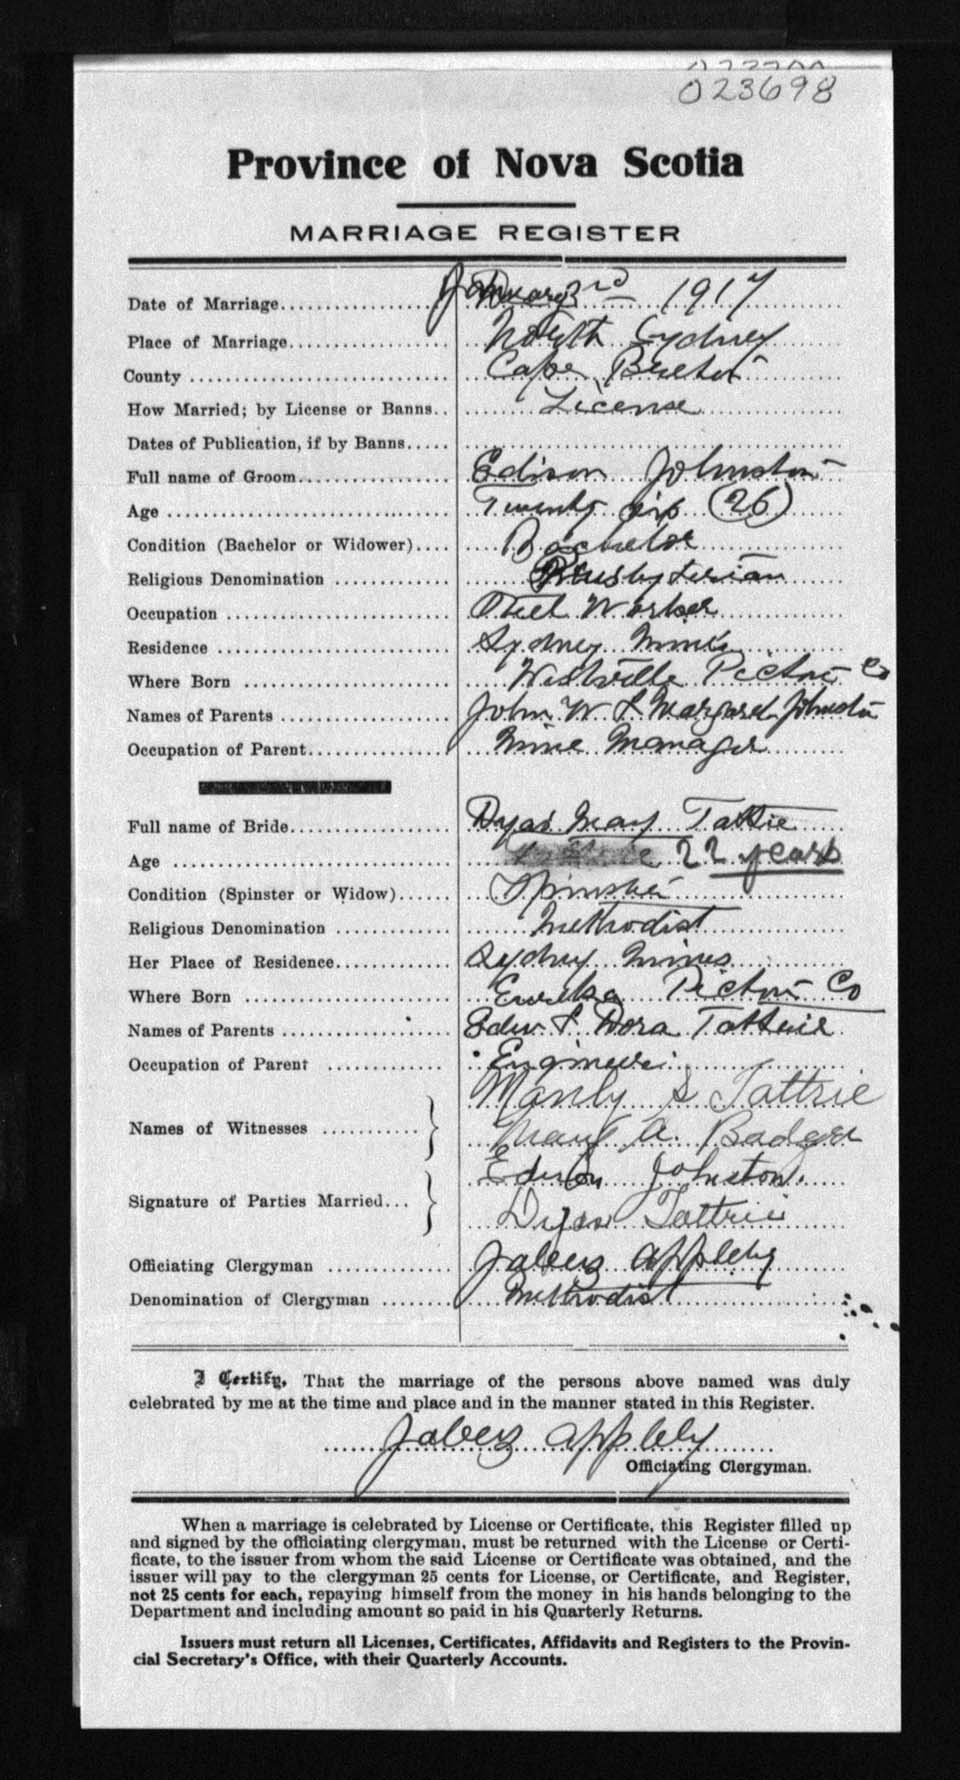 023698
Province of Nova Scotia
MARRIAGE REGISTER
Date of Marriage January 3rd 1917
Place of Marriage North Sydney
County Cape Breton
How Married; by License or Banns License
Dates of Publication, if by Banns
Full name of Groom Edison Johnston
Age Twenty six (26)
Condition (Bachelor or Widower) Bachelor
Religious Denomination Presbyterian
Occupation Steel Worker
Residence Sydney Mines
Where Born Westville Pictou Co
Names of Parents John W & Margaret Johnston
Occupation of Parent Mine Manager
Full name of Bride Dyas May Tattrie
Age 22 years
Condition (Spinster or Widow) Spinster
Religious Denomination Methodist
Her Place of Residence Sydney Mines
Where Born Eureka Pictou Co
Names of Parents Edw. & Dora Tattrie
Occupation of Parent Engineer
Names of Witnesses Manly S Tattrie
Mary A. Badger
Signature of Parties Married Edison Johnston.
Dyas Tattrie
Officiating Clergyman Jabez Appleby
Denomination of Clergyman Methodist
I Certify, That the marriage of the persons above named was duly
celebrated by me at the time and place and in the manner stated in this Register.
Jabez Appleby
Officiating Clergyman.
When a marriage is celebrated by License or Certificate, this Register filled up
and signed by the officiating clergyman, must be returned with the License or Certi-
ficate, to the issuer from whom the said License or Certificate was obtained, and the
issuer will pay to the clergyman 25 cents for License, or Certificate, and Register,
not 25 cents for each, repaying himself from the money in his hands belonging to the
Department and including amount so paid in his Quarterly Returns.
Issuers must return all Licenses, Certificates, Affidavits and Registers to the Provin-
cial Secretary's Office, with their Quarterly Accounts.